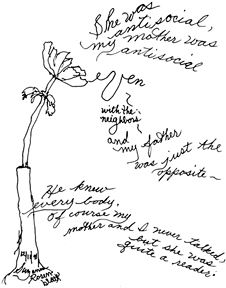 She was
antisocial,
my mother was
antisocial
even
with the
neighbors
and
my father
was just the
opposite~
He knew
every body.
Of course my
mother and I never talked,
but she was
quite a reader.